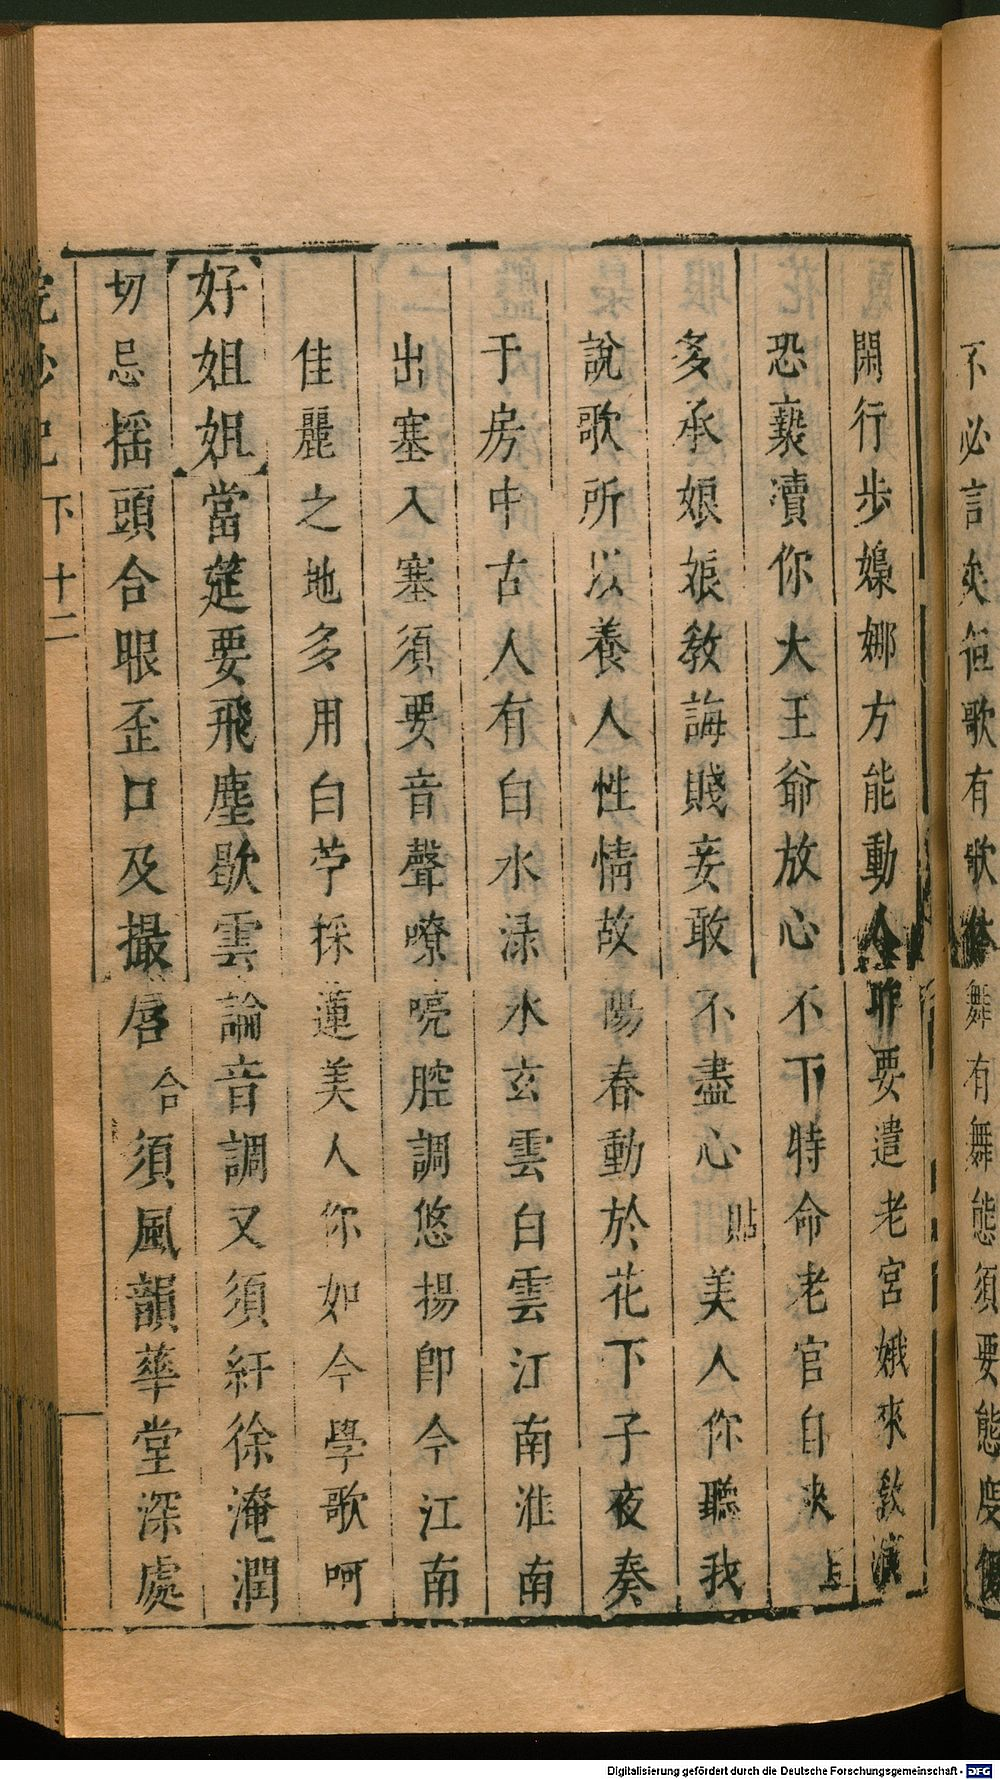 不必言矣但歌有歌體舞有舞態須要態度優
閑行步嬝娜方能動人聊要遣老宮娥來敎演
恐褻瀆你大王爺放心不下特命老官自來上
多承娘娘敎誨賤妾敢不盡心貼美人你聽我
說歌所以養人性情故陽春動於花下子夜奏
于房中古人有白水淥水玄雲白雲江南淮南
出塞入塞須要音聲嘹喨腔調悠揚卽今江南
佳麗之地多用白苧採蓮美人你如今學歌呵
好姐姐當筵要飛塵歇雲論音調又須紆徐淹潤
切忌揺頭合眼歪口及撮唇合須風韻華堂深處
浣紗記 下 十二
Digitalisierung gefördert durch die Deutsche Forschungsgemeinschaft - DFG